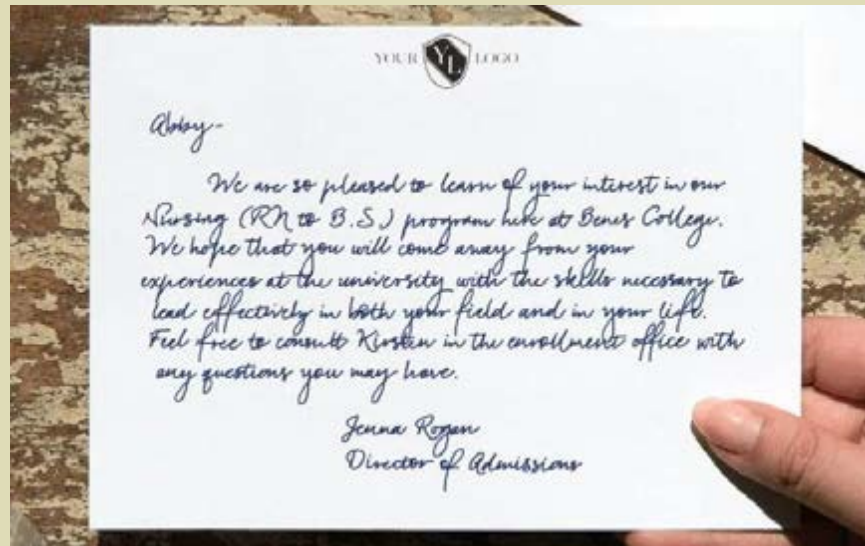 YOUR YL LOGO
Abby-
We are so pleased to learn of your interest in our
Nursing (RN to B.S.) program here at Benes College.
We hope that you will come away from your
experiences at the university with the skills necessary to
lead effectively in both your field and in your life.
Feel free to consult Kirsten in the enrollment office with
any questions you may have.
Jenna Rogan
Director of Admissions